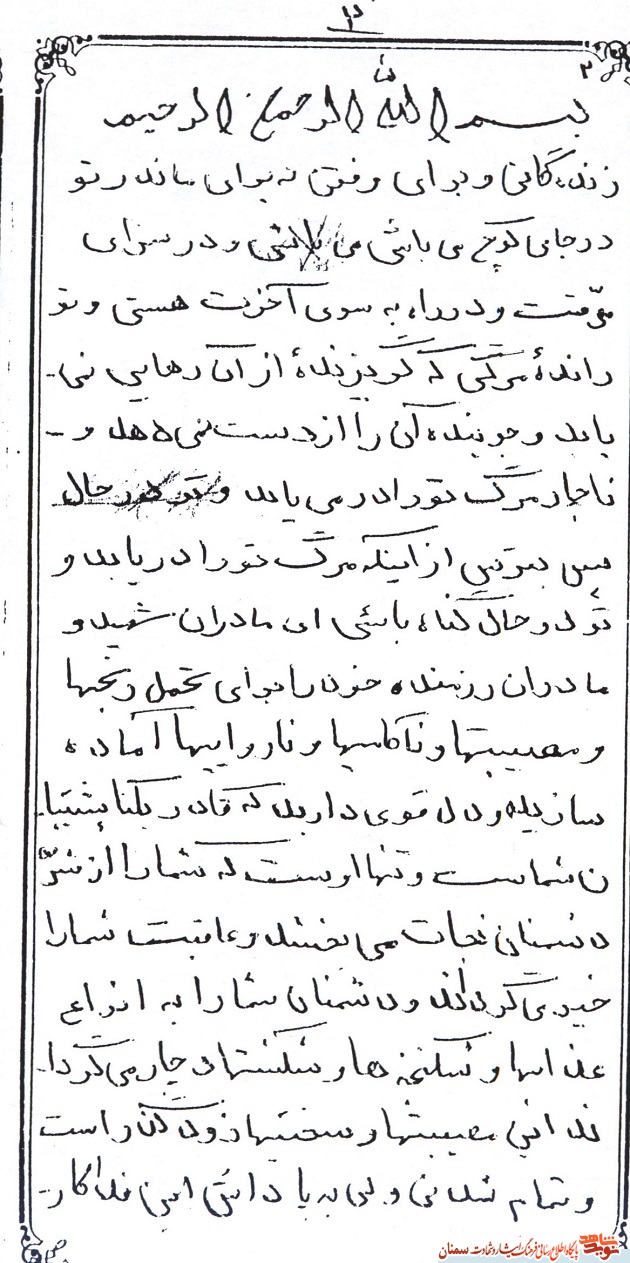 ۲
بسم الله الرحمن الرحیم
زنده گانی و برای رفتن نه برای ماندن تو
در جای کوچ می باشی می باشی و در سرای
موقت و در راه به سوی آخرت هستی و تو
رانده مرگی که گریزنده از آن رهایی نمی-
یابد و جوینده آن را از دست نمی دهد و-
ناچار مرگ تو را در می یابد و تو در حال
پس بترس از اینکه مرگ تو را دریابد و
تو در حال گناه باشی ای مادران شهید و
مادران رزمنده خود را برای تحمل رنجها
و مصیبتها و ناکامیها و نارواییها آماده
سازید و دل قوی دارید که قادر یکتا پشتیبا
ن شماست و تنها اوست که شما را از شرّ
دشمنان نجات می بخشد و عاقبت شما را
خیر می گرداند و دشمنان شما را به انواع
عذابها و شکنجه ها و شکستها دچار می گردا-
ند این مصیبتها و سختیها زود گذر است
و تمام شدنی ولی به پاداش این فداکار-
نوید شاهد
پایگاه اطلاع رسانی فرهنگ ایثار و شهادت سمنان